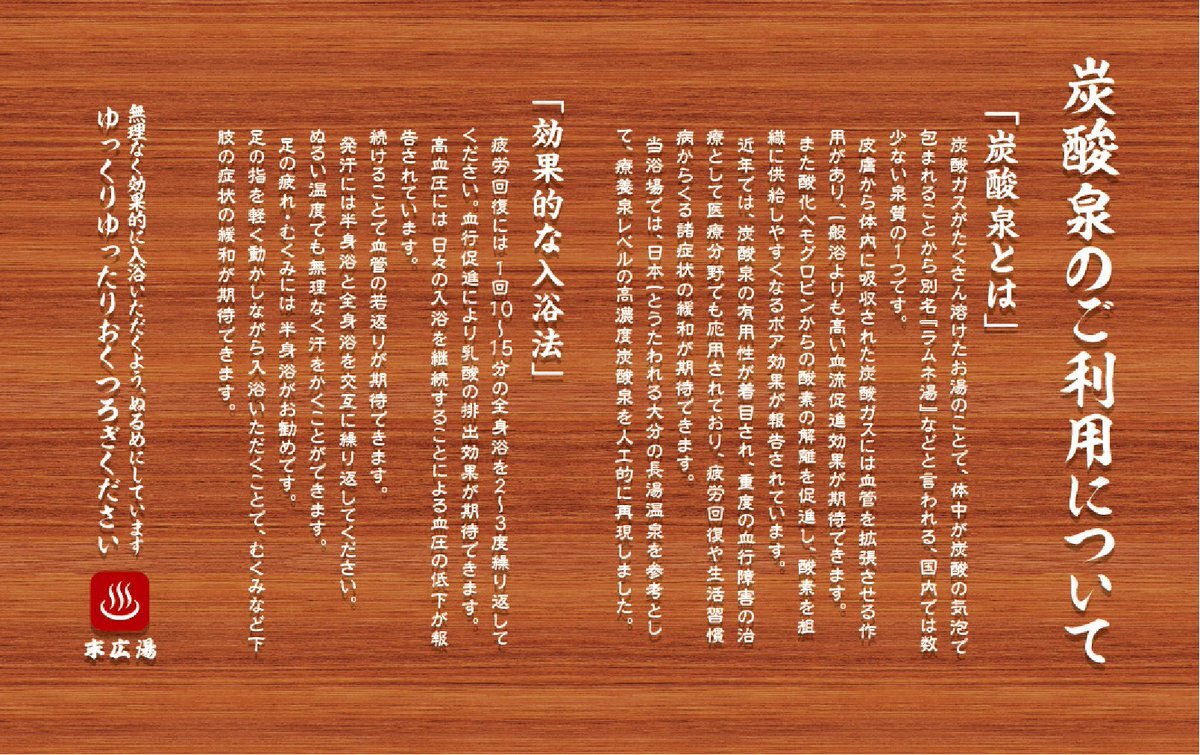 炭酸泉のご利用について
「炭酸泉とは」
炭酸ガスがたくさん溶けたお湯のことで、体中が炭酸の気泡で
包まれることから別名『ラムネ湯』などと言われる、国内では数
少ない泉質の1つです。
皮膚から体内に吸収された炭酸ガスには血管を拡張させる作
用があり、一般浴よりも高い血流促進効果が期待できます。
また酸化ヘモグロビンからの酸素の解離を促進し、酸素を組
織に供給しやすくなるボア効果が報告されています。
近年では、炭酸泉の有用性が着目され、重度の血行障害の治
療として医療分野でも応用されており、疲労回復や生活習慣
病からくる諸症状の緩和が期待できます。
当浴場では、日本一とうたわれる大分の長湯温泉を参考とし
て、療養泉レベルの高濃度炭酸泉を人工的に再現しました。
「効果的な入浴法」
疲労回復には1回10〜15分の全身浴を2〜3度繰り返して
ください。血行促進により乳酸の排出効果が期待できます。
高血圧には日々の入浴を継続することによる血圧の低下が報
告されています。
続けることで血管の若返りが期待できます。
発汗には半身浴と全身浴を交互に繰り返してください。
ぬるい温度でも無理なく汗をかくことができます。
足の疲れ・むくみには半身浴がお勧めです。
足の指を軽く動かしながら入浴いただくことで、むくみなど下
肢の症状の緩和が期待できます。
無理なく効果的に入浴いただくよう、ぬるめにしています
ゆっくりゆったりおくつろぎください
末広湯